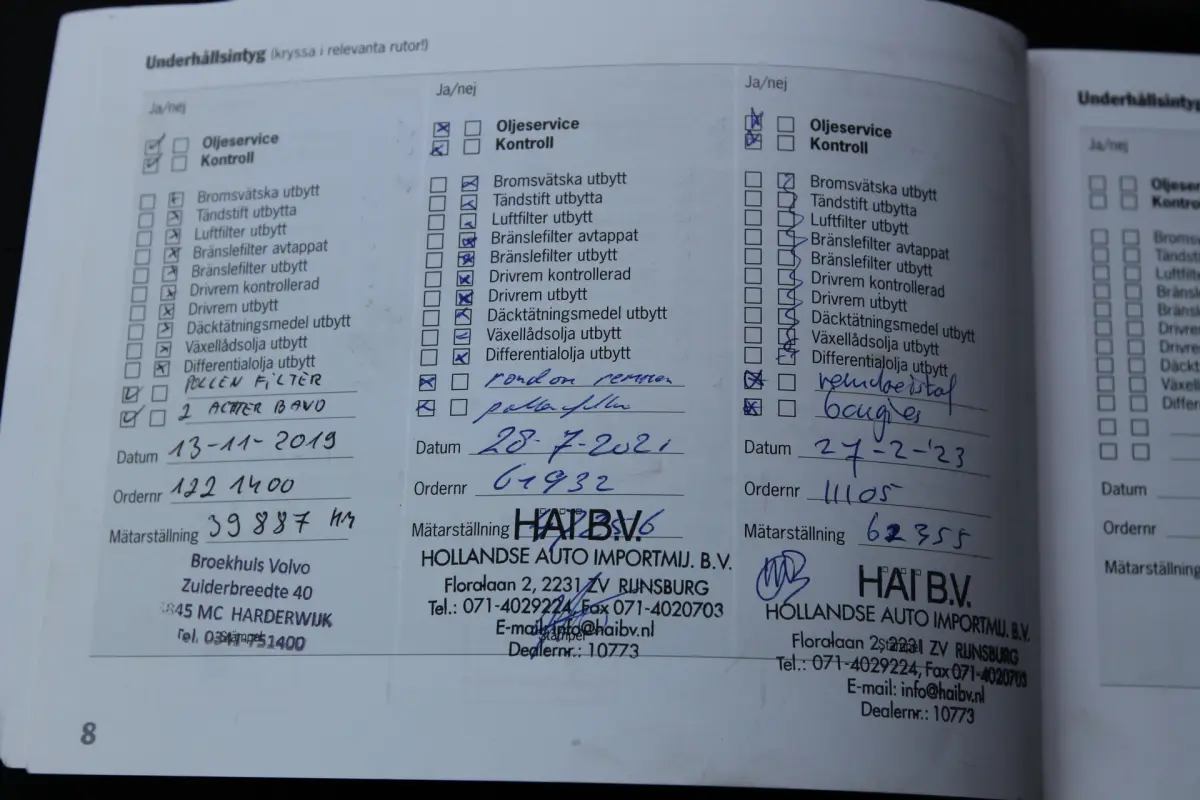 Underhållsintyg (kryssa i relevanta rutor!)
Ja/nej
Oljeservice
Kontroll
Bromsvätska utbytt
Tändstift utbytta
Luftfilter utbytt
Bränslefilter avtappat
Bränslefilter utbytt
Drivrem kontrollerad
Drivrem utbytt
Däcktätningsmedel utbytt
Växellådsolja utbytt
Differentialolja utbytt
POLLEN FILTER
2 ACHTER BAND
Datum 13-11-2019
Ordernr 122 1400
Mätarställning 39 887 KM
Broekhuis Volvo
Zuiderbreedte 40
45 MC HARDERWIJK
Tel. 0341-751400
Stämpel
Ja/nej
Oljeservice
Kontroll
Bromsvätska utbytt
Tändstift utbytta
Luftfilter utbytt
Bränslefilter avtappat
Bränslefilter utbytt
Drivrem kontrollerad
Drivrem utbytt
Däcktätningsmedel utbytt
Växellådsolja utbytt
Differentialolja utbytt
rondom remmen
pollenfilter
Datum 28-7-2021
Ordernr 61932
Mätarställning
HAI B.V.
HOLLANDSE AUTO IMPORTMIJ. B.V.
Floralaan 2, 2231 ZV RIJNSBURG
Tel.: 071-4029224, Fax 071-4020703
E-mail: info@haibv.nl
Stämpel
Dealernr.: 10773
Ja/nej
Oljeservice
Kontroll
Bromsvätska utbytt
Tändstift utbytta
Luftfilter utbytt
Bränslefilter avtappat
Bränslefilter utbytt
Drivrem kontrollerad
Drivrem utbytt
Däcktätningsmedel utbytt
Växellådsolja utbytt
Differentialolja utbytt
remvloeistof
bougies
Datum 27-2-'23
Ordernr 11105
Mätarställning 62355
HAI B.V.
HOLLANDSE AUTO IMPORTMIJ. B.V.
Floralaan 2, 2231 ZV RIJNSBURG
Stämpel
Tel.: 071-4029224, Fax 071-4020703
E-mail: info@haibv.nl
Dealernr.: 10773
8
Underhållsintyg
Ja/nej
Datum
Ordernr
Mätarställning